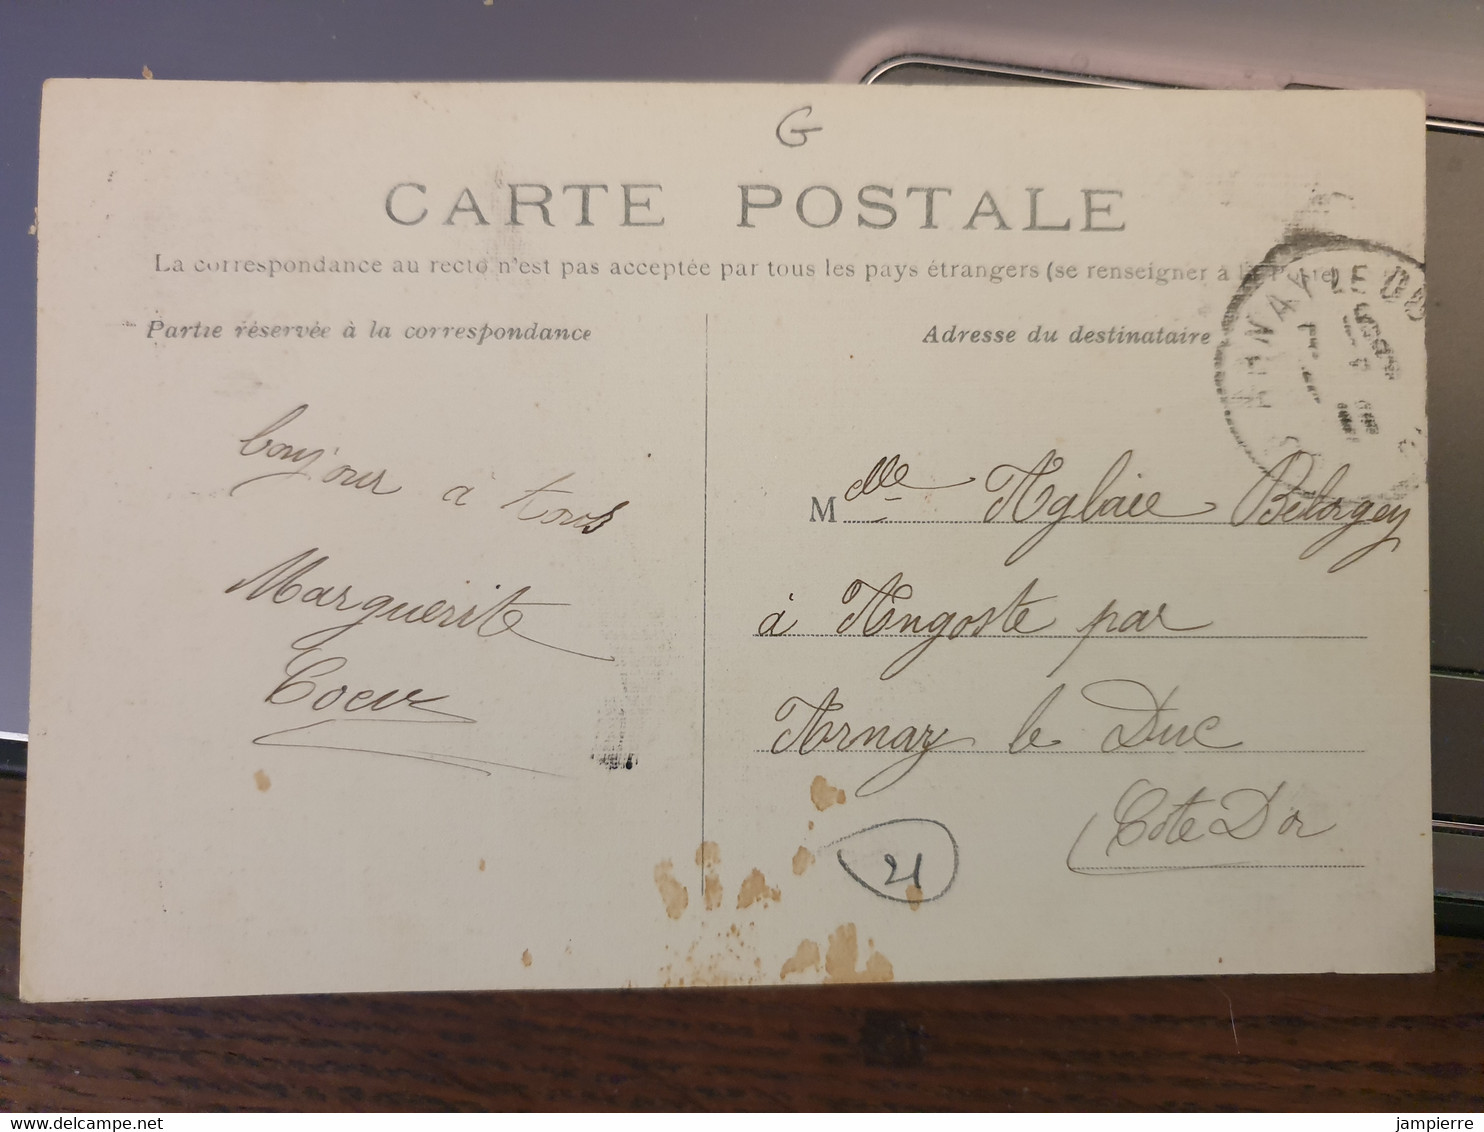 G
CARTE POSTALE
La correspondance au recto n'est pas acceptée par tous les pays étrangers (se renseigner à la Poste
Partie réservée à la correspondance
Adresse du destinataire
ARNAY LE DU
bonjour à tous
Marguerite
Coeur
M elle Aglaïe Belorgey
à Angoste par
Arnay le Duc
Côte D'or
21
www.delcampe.net
jampierre